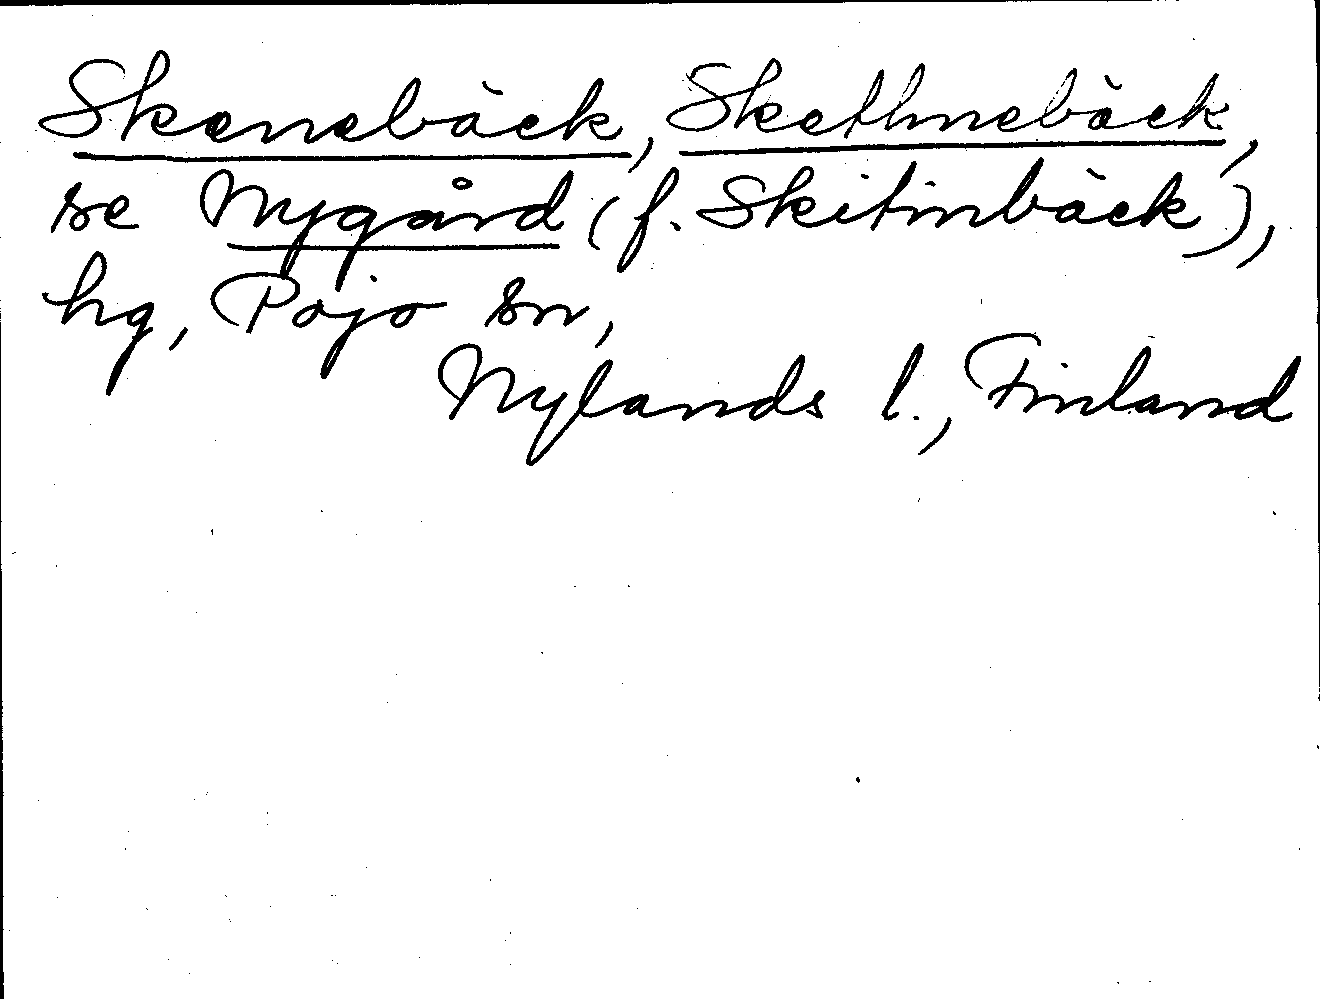 Skenebäck, Skethnebäck,
se Nygård (f. Skitinbäck),
hg, Pojo sn,
Nylands l., Finland